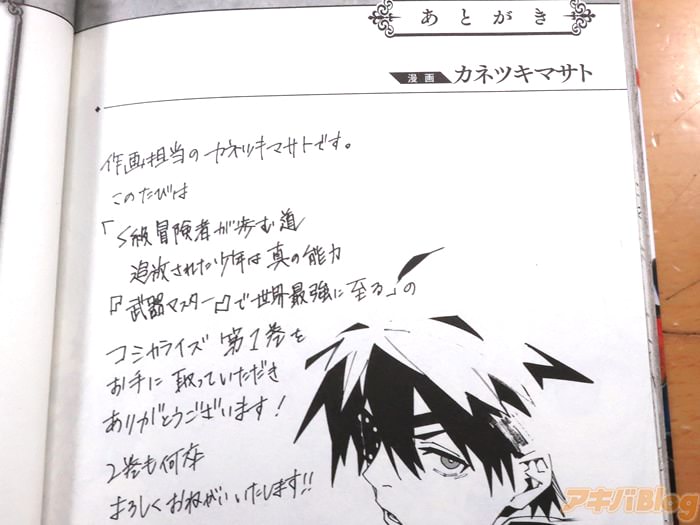 あとがき
漫画 カネツキマサト
作画担当のカネツキマサトです。
このたびは
「S級冒険者が歩む道
追放された少年は真の能力
『武器マスター』で世界最強に至る」の
コミカライズ 第1巻を
お手に取っていただき
ありがとうございます!
2巻も何卒
よろしくおねがいいたします!!
アキバBlog